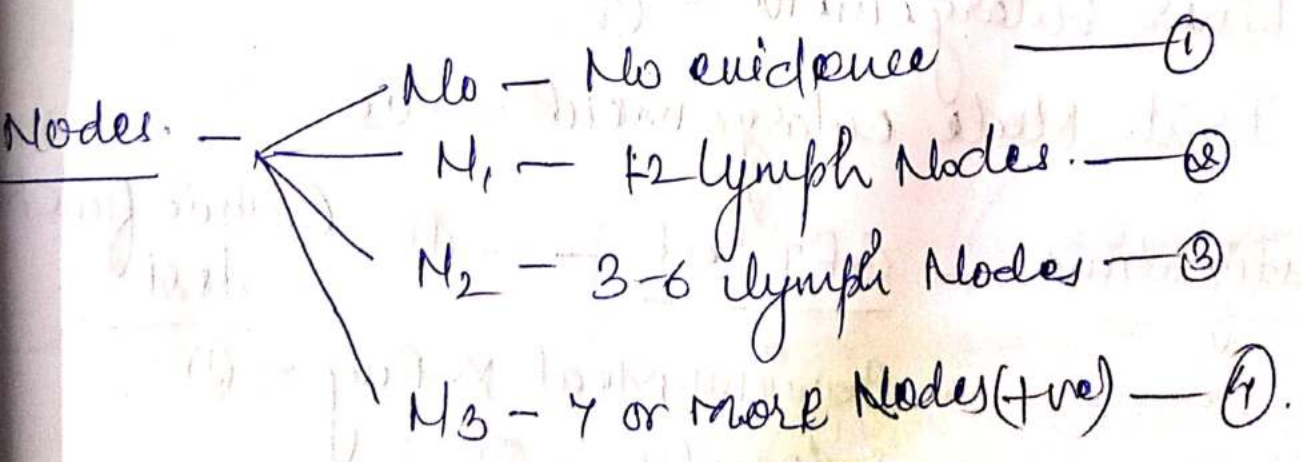 Nodes. —
No — No evidence — ①
N₁ — 1-2 lymph Nodes. — ②
N₂ — 3-6 lymph Nodes — ③
N3 — 7 or more Nodes (+ve) — ④.